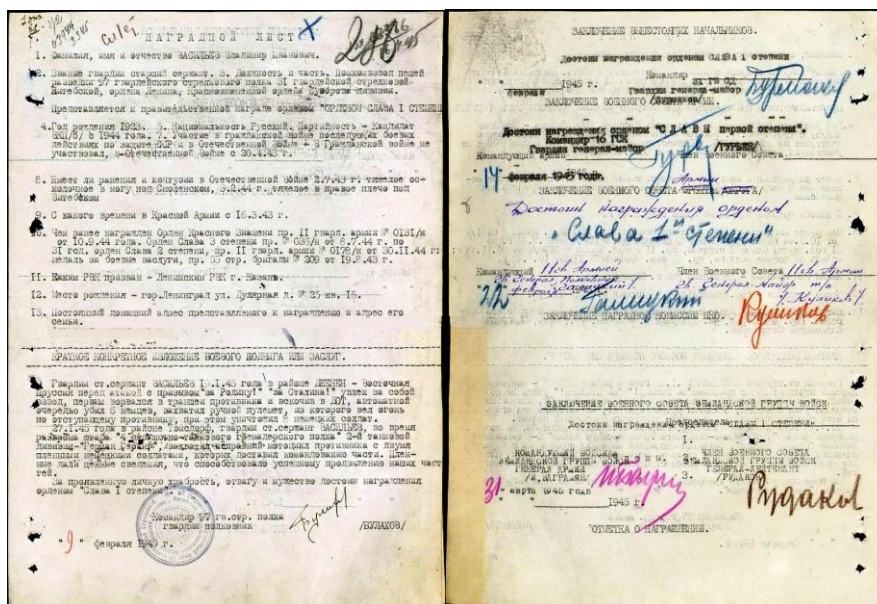 НАГРАДНОЙ ЛИСТ
1. Фамилия, имя и отчество ВАСИЛЬЕВ Владимир Иванович.
2. Звание гвардии старший сержант. 3. Должность и часть. Помкомвзвод пешей
разведки 97 гвардейского стрелкового полка 31 гвардейской стрелковой
Витебской, ордена Ленина, Краснознаменной ордена Суворова дивизии.
Представляется к правительственной награде орденом "ОРДЕНОМ СЛАВА I СТЕПЕНИ
4. Год рождения 1923. 5. Национальность Русский. Партийность - Кандидат
ВКП/б/ с 1944 года. 7. Участие в гражданской войне последующих боевых
действиях по защите СССР и в Отечественной Войне - В Гражданской войне не
участвовал, в Отечественной Войне с 20.4.43 г.
8. Имеет ли ранения и контузии в Отечественной Войне 2.7.43 г. тяжелое ос-
колочное в ногу под Смоленском, 5.2.44 г. тяжелое в правое плечо под
Витебском
9. С какого времени в Красной Армии с 16.3.43 г.
10. Чем ранее награжден Орден Красного Знамени пр. 11 гвард. армии № 0181/н
от 10.9.44 года. Орден Слава 3 степени пр. № 036/н от 8.7.44 г. по
31 гсд. орден Слава 2 степени, пр. 11 гвард. армии № 0198/н от 30.11.44 г.
медаль за боевые заслуги, пр. 35 стр. бригады № 209 от 19.8.43 г.
11. Каким РВК призван - Ленинским РВК г. Казань.
12. Место рождения - гор. Ленинград ул. д. № 25 кв. 16.
13. Постоянный домашний адрес представляемого к награждению и адрес его
семьи.
КРАТКОЕ КОНКРЕТНОЕ ИЗЛОЖЕНИЕ БОЕВОГО ПОДВИГА ИЛИ ЗАСЛУГ.
Гвардии ст.сержант ВАСИЛЬЕВ 19.1.45 года в районе - Восточная
Пруссия перед атакой с призывом "за Родину!" "за Сталина!" увлек за собой
взвод, первым ворвался в траншеи противника и вскочив в ДОТ, автоматной
очередью убил 6 немцев, захватил ручной пулемет, из которого вел огонь
по отступающему противнику, при этом уничтожил 8 немецких солдат.
27.1.45 года в районе гвардии ст.сержант ВАСИЛЬЕВ, во время
разгрома штаба гренадерского полка 2-й танковой
дивизии "Герман Геринг" мотоцикл противника с двумя
пленными немецкими солдатами, которых доставил командованию части. Плен-
ные дали ценные сведения, что способствовало успешному продвижению наших час
тей.
За проявленную личную храбрость, отвагу и мужество достоин награждения
орденом "Слава I степени".
Командир 97 гв.стр. полка
гвардии полковник /БУЛАХОВ/
"9" февраля 1945 г.
ЗАКЛЮЧЕНИЕ ВЫШЕСТОЯЩИХ НАЧАЛЬНИКОВ.
Достоин награждения орденом СЛАВА I степени
Командир 31 ГВ СД
Гвардии генерал-майор
февраля 1945 г.
ЗАКЛЮЧЕНИЕ ВОЕННОГО
Достоин награждения орденом "СЛАВЫ первой степени".
Командир 16 ГСК
Гвардии генерал-майор /ГУРЬЕВ/
Командующий армии Член Военного Совета
14 февраля 1945 года.
Армии
ЗАКЛЮЧЕНИЕ ВОЕННОГО СОВЕТА ФРОНТА /ОКРУГА/
Достоин награждения орденом
"Слава 1ой степени"
Командующий 11 гв. Армией Член Военного Совета 11 гв. Армии
гв. Генерал-майор т/в
Галицкий /. Куликов/.
22 Галицкий Куликов
ЗАКЛЮЧЕНИЕ НАГРАДНОЙ КОМИССИИ НКО.
ЗАКЛЮЧЕНИЕ ВОЕННОГО СОВЕТА ЗЕМЛАНДСКОЙ ГРУППЫ ВОЙСК
Достоин награждения орденом "СЛАВА I СТЕПЕНИ"
КОМАНДУЮЩИЙ ВОЙСКАМИ ЧЛЕН ВОЕННОГО СОВЕТА
ЗЕМЛАНДСКОЙ ГРУППЫ ВОЙСК ЗЕМЛАНДСКОЙ ГРУППЫ ВОЙСК
ГЕНЕРАЛ АРМИИ ГЕНЕРАЛ-ЛЕЙТЕНАНТ
/И.БАГРАМЯН/ /РУДАКОВ/
31 марта 1945 года Рудаков
1945 г.
ОТМЕТКА О НАГРАЖДЕНИИ.